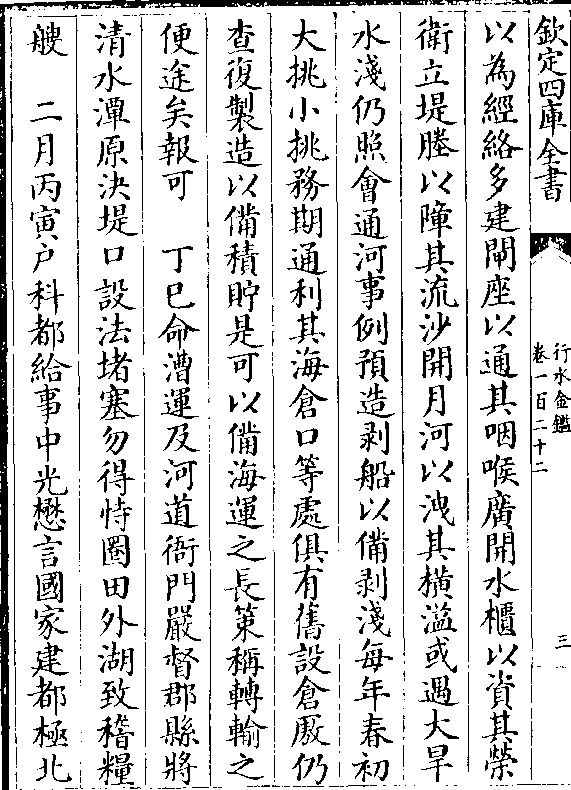 欽定四庫全書
行水金鑑
卷一百二十二
三
以為經絡多建閘座以通其咽喉廣開水櫃以資其榮
衛立堤塍以障其流沙開月河以洩其橫溢或遇大旱
水淺仍照會通河事例預造剥船以備剥淺每年春初
大挑小挑務期通利其海倉口等處俱有舊設倉厫仍
查復製造以備積貯是可以備海運之長策稱轉輸之
便途矣報可　丁巳命漕運及河道衙門嚴督郡縣將
清水潭原決堤口設法堵塞勿得恃圈田外湖致稽糧
艘　二月丙寅户科都給事中光懋言國家建都極北